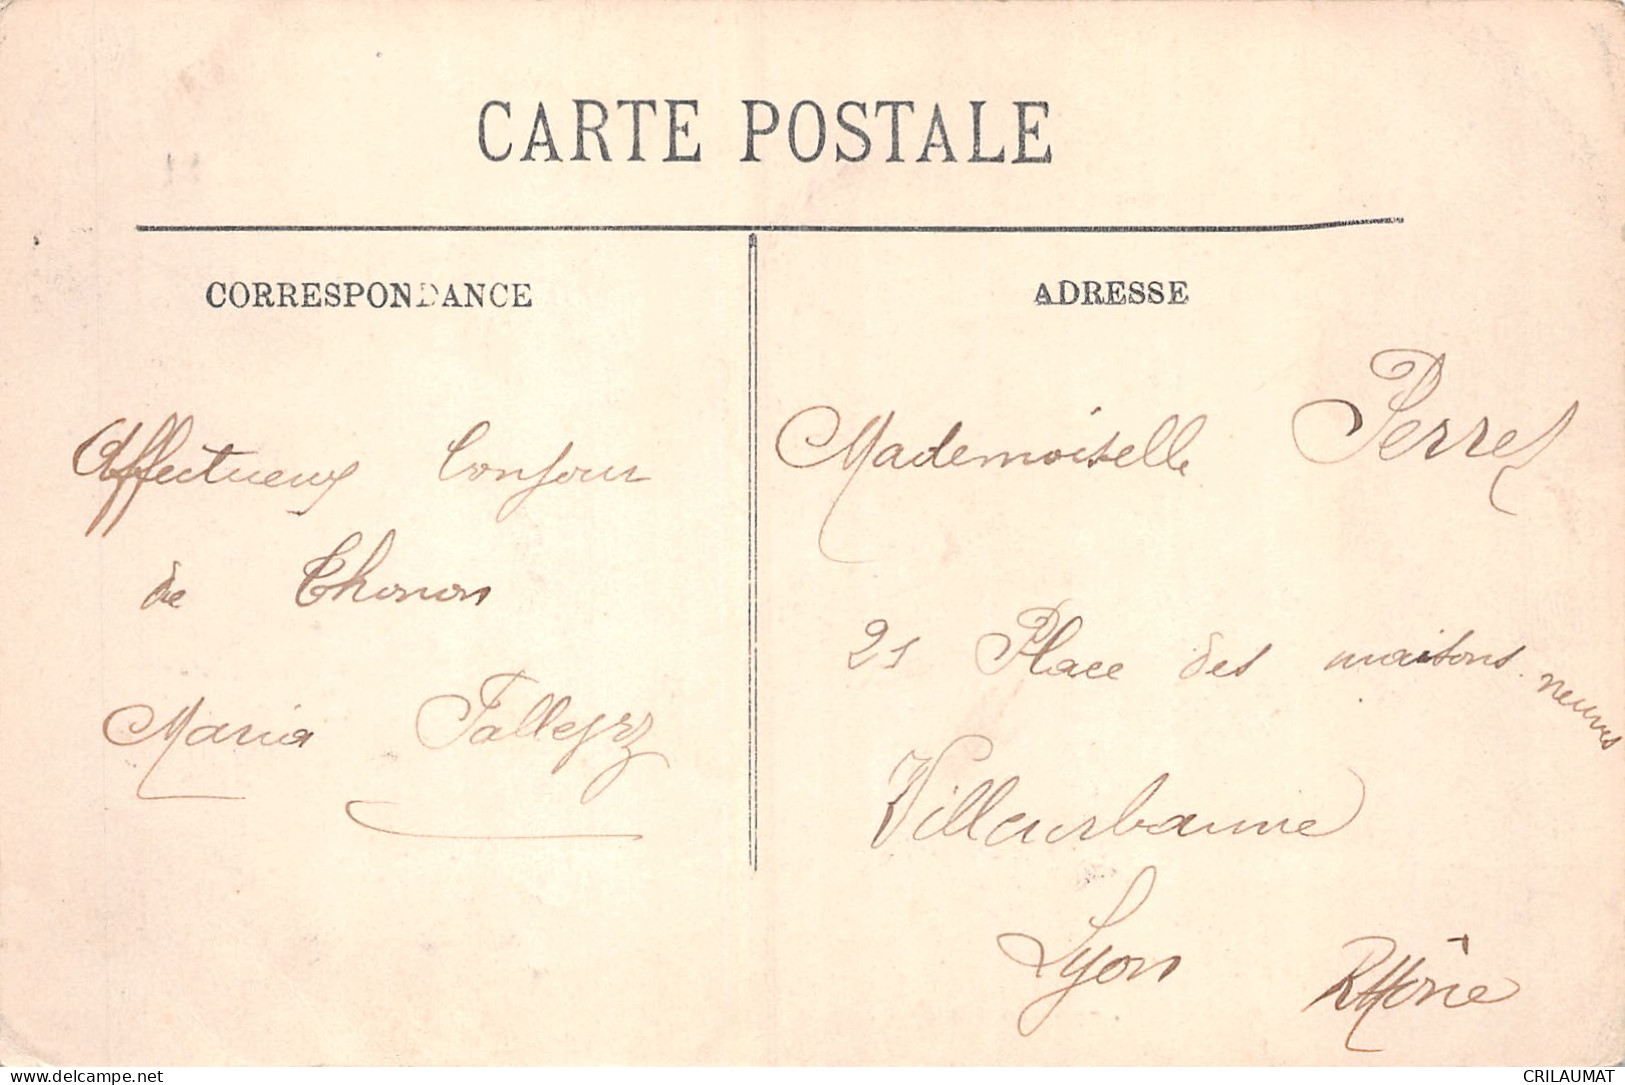 CARTE POSTALE
CORRESPONDANCE
Affectueux bonjour
de Thonon
Maria
ADRESSE
Mademoiselle Perret
21 Place des maisons neuves
Villeurbanne
Lyon Rhône
www.delcampe.net
CRILAUMAT